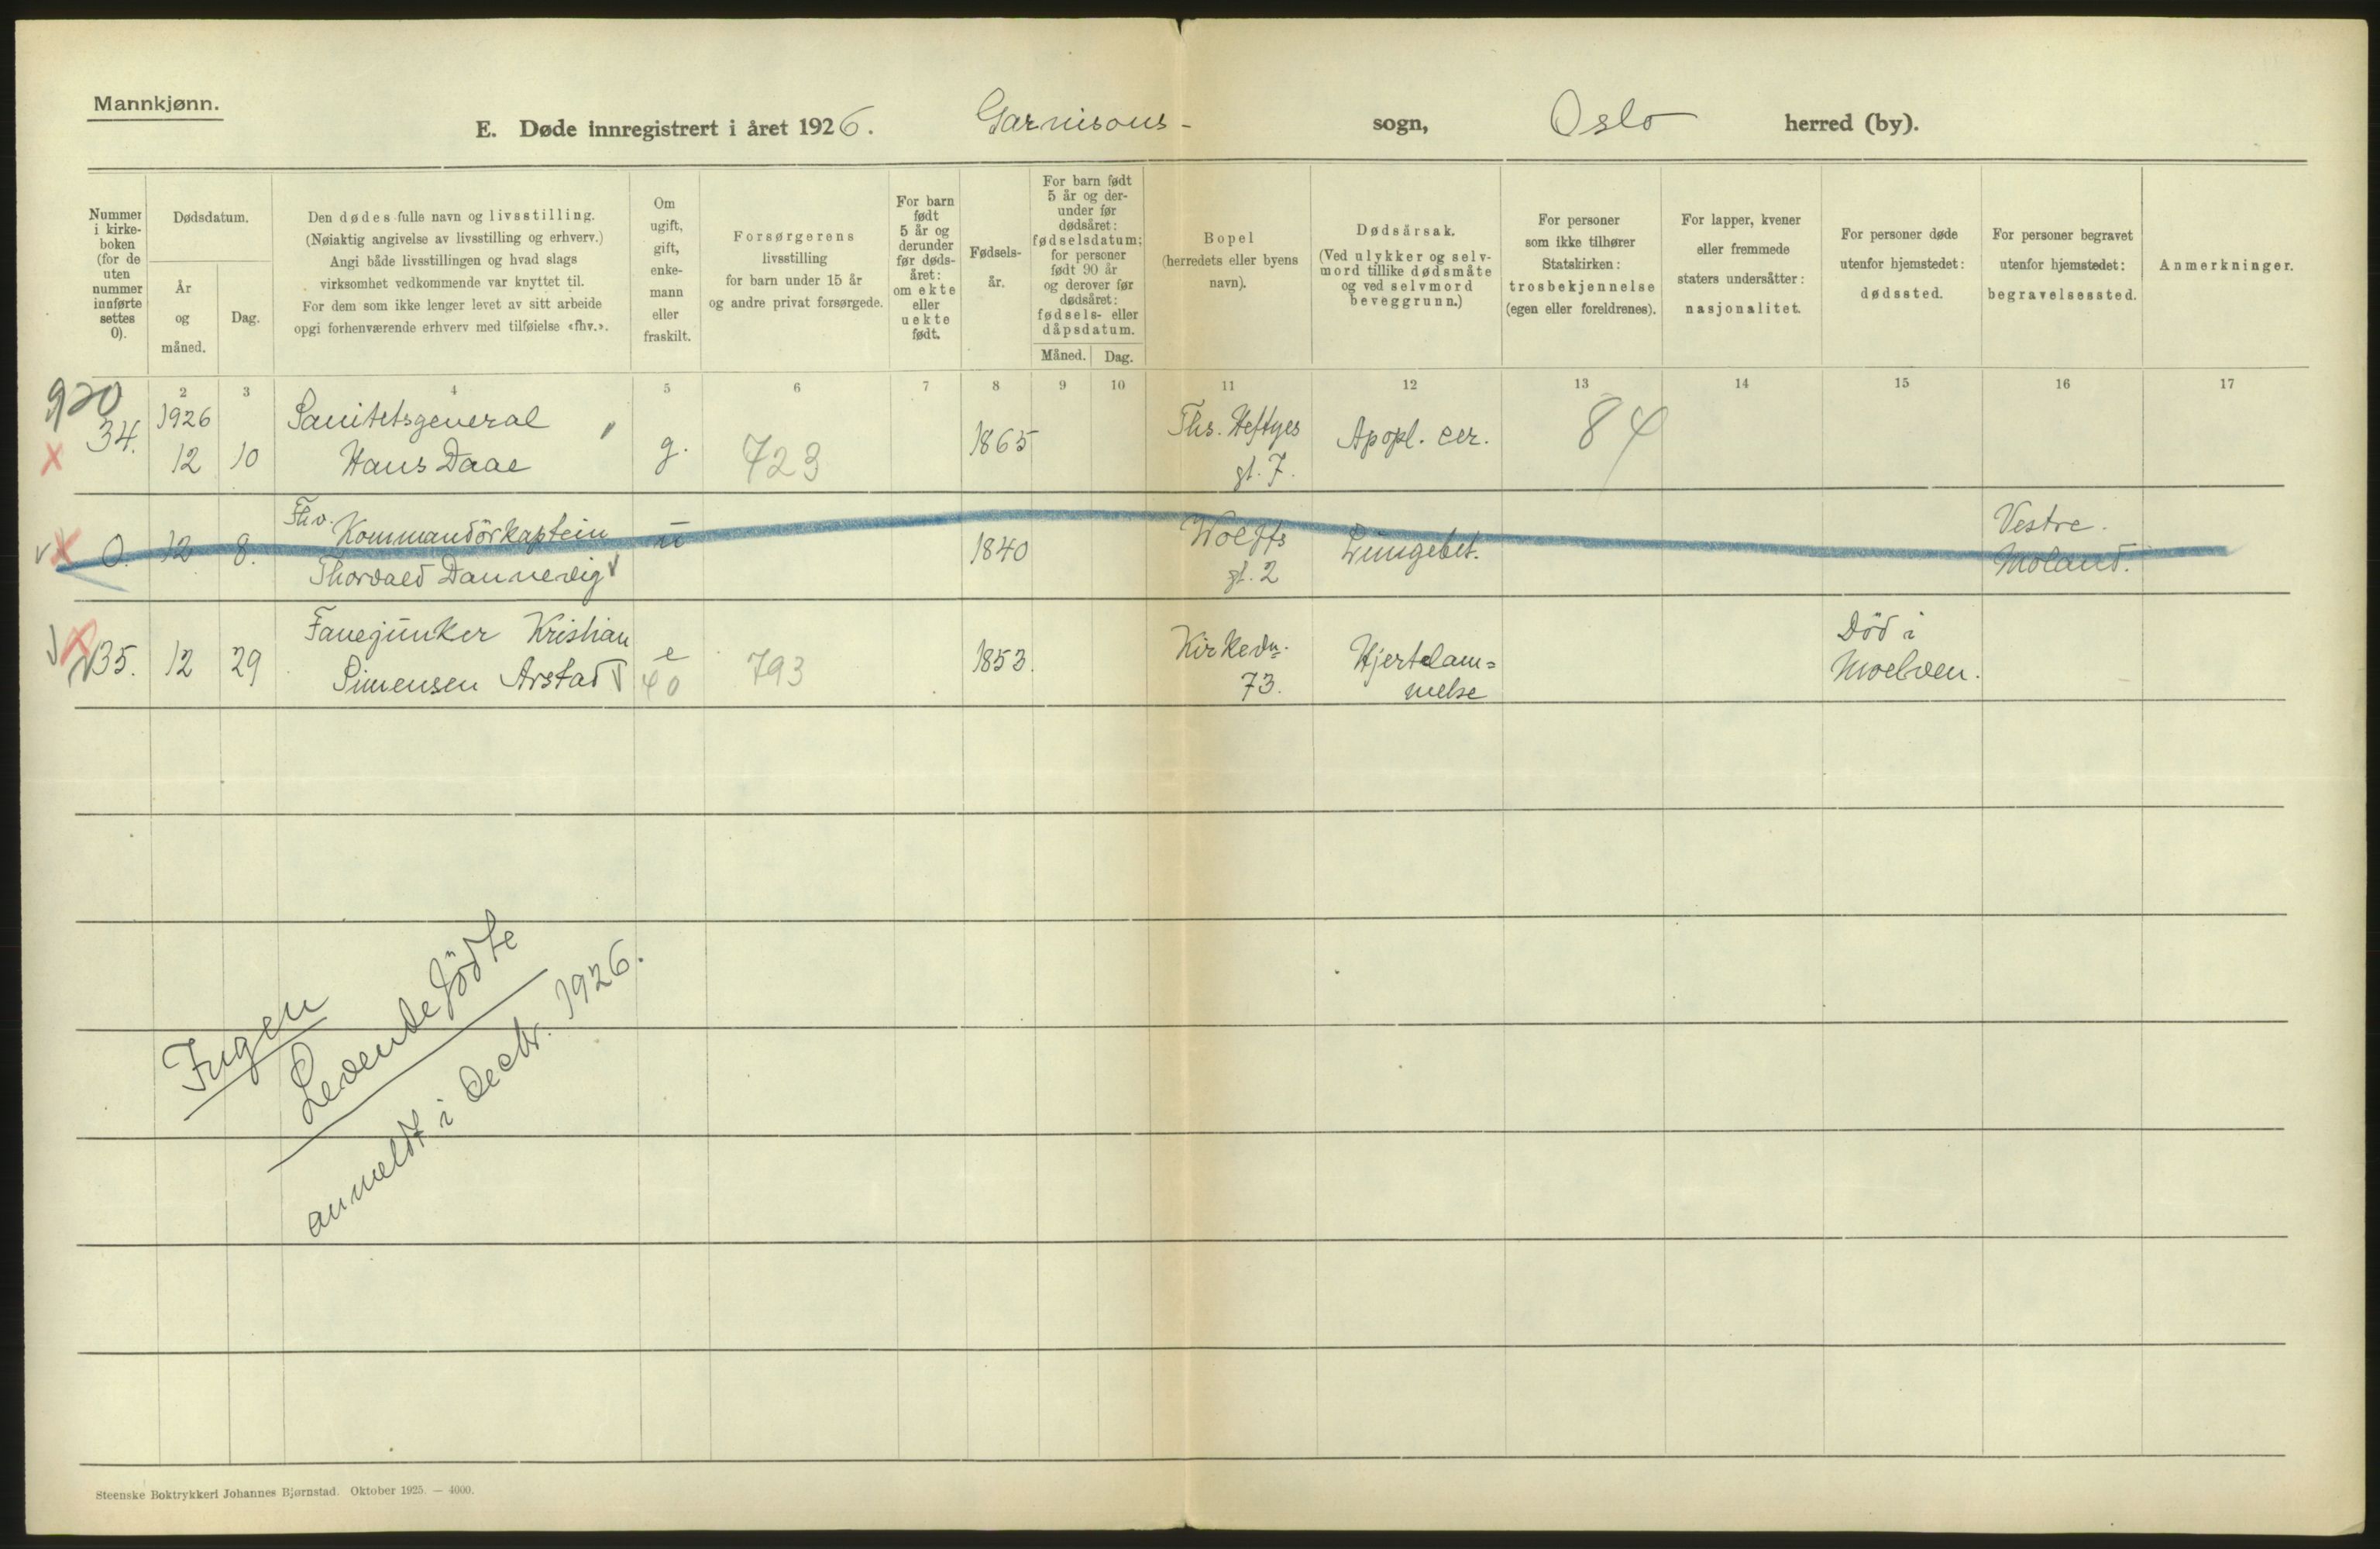 Mannkjønn.
E. Døde innregistrert i året 1926. Garnisons- sogn, Oslo herred (by).
Nummer
i kirke-
boken
(for de
uten
nummer
innførte
settes
0).
Dødsdatum.
År
og
måned.
Dag.
Den dødes fulle navn og livsstilling.
(Nøiaktig angivelse av livsstilling og erhverv.)
Angi både livsstillingen og hvad slags
virksomhet vedkommende var knyttet til.
For dem som ikke lenger levet av sitt arbeide
opgi forhenværende erhverv med tilføielse «fhv.».
Om
ugift,
gift,
enke-
mann
eller
fraskilt.
Forsørgerens
livsstilling
for barn under 15 år
og andre privat forsørgede.
For barn
født
5 år og
derunder
før døds-
året:
om ekte
eller
uekte
født.
Fødsels-
år.
For barn født
5 år og der-
under før
dødsåret:
fødselsdatum;
for personer
født 90 år
og derover før
dødsåret:
fødsels- eller
dåpsdatum.
Måned. Dag.
Bopel
(herredets eller byens
navn).
Dødsårsak.
(Ved ulykker og selv-
mord tillike dødsmåte
og ved selvmord
beveggrunn.)
For personer
som ikke tilhører
Statskirken:
trosbekjennelse
(egen eller foreldrenes).
For lapper, kvener
eller fremmede
staters undersåtter:
nasjonalitet.
For personer døde
utenfor hjemstedet:
dødssted.
For personer begravet
utenfor hjemstedet:
begravelsessted.
Anmerkninger.
2 3 4 5 6 7 8 9 10 11 12 13 14 15 16 17
920
1926 Sanitetsgeneral Ths. Heftyes
34. 12 10 Hans Daae g. 723 1865 gt. 7. Apopl. cer. 84
Fhv. Kommandörkaptein Wolffs Vestre
0. 12 8. Thorvald Dannevig u 1840 gt. 2 Lungebet. Moland.
Fanejunker Kristian Kirkevn. Hjertelam= Död i
35. 12 29 Simensen Arstad e 40 793 1853. 73. melse Moelven.
Ingen
Levendefödte
anmeldt i Decbr. 1926.
Steenske Boktrykkeri Johannes Bjørnstad. Oktober 1925. — 4000.